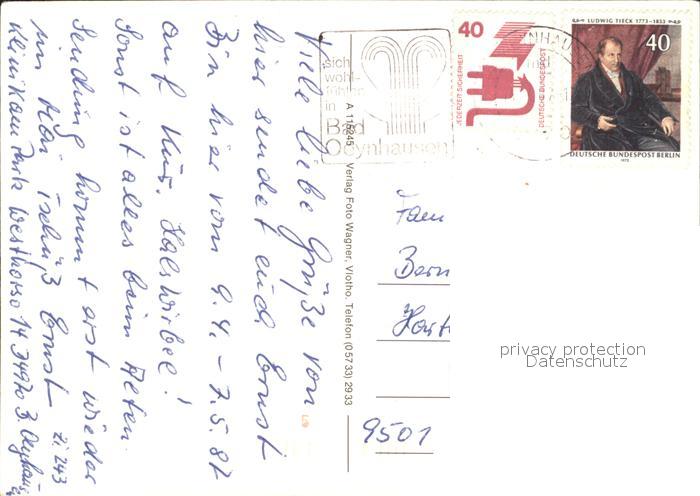 Viele liebe Grüße von
hier sendet euch Ernst
Bin hier vom 9.4. – 7.5.87
auf Kur. Halswirbel!
Sonst ist alles beim Alten.
Sendung kommt erst wieder
im Mai Tschüß Ernst Zi. 243
Klinik am Park Westkorso 14 4970 B. Oeynhausen
A 118245 Verlag Foto Wagner, Vlotho. Telefon (0 57 33) 29 33
sich
wohl-
fühlen
in
Bad
Oeynhausen
40
JEDERZEIT SICHERHEIT
DEUTSCHE BUNDESPOST
LUDWIG TIECK 1773–1853
40
DEUTSCHE BUNDESPOST BERLIN
1973
Fam
Bern
Hart
9501
privacy protection
Datenschutz